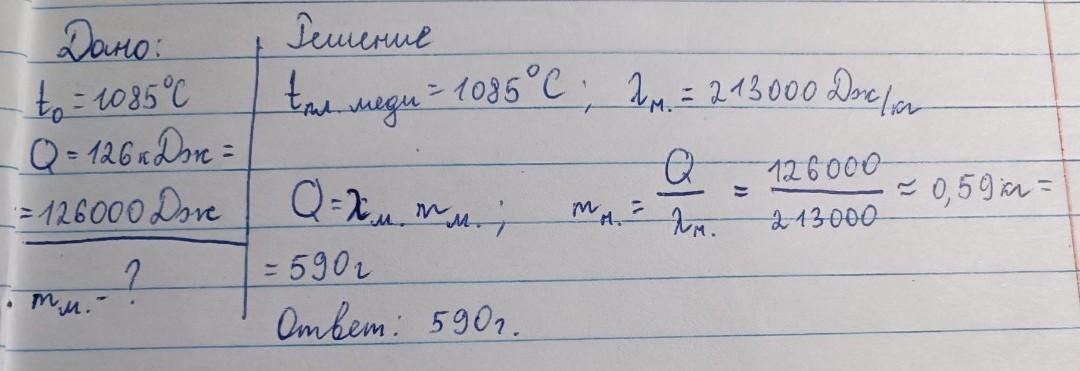 Дано:
t₀ = 1085°C
Q = 126 кДж =
= 126000 Дж
mм. - ?
Решение
tпл. меди = 1085°C ; λм. = 213000 Дж/кг
Q = λм. mм. ; mм. = Q/λм. = 126000/213000 ≈ 0,59 кг =
= 590 г
Ответ: 590 г.